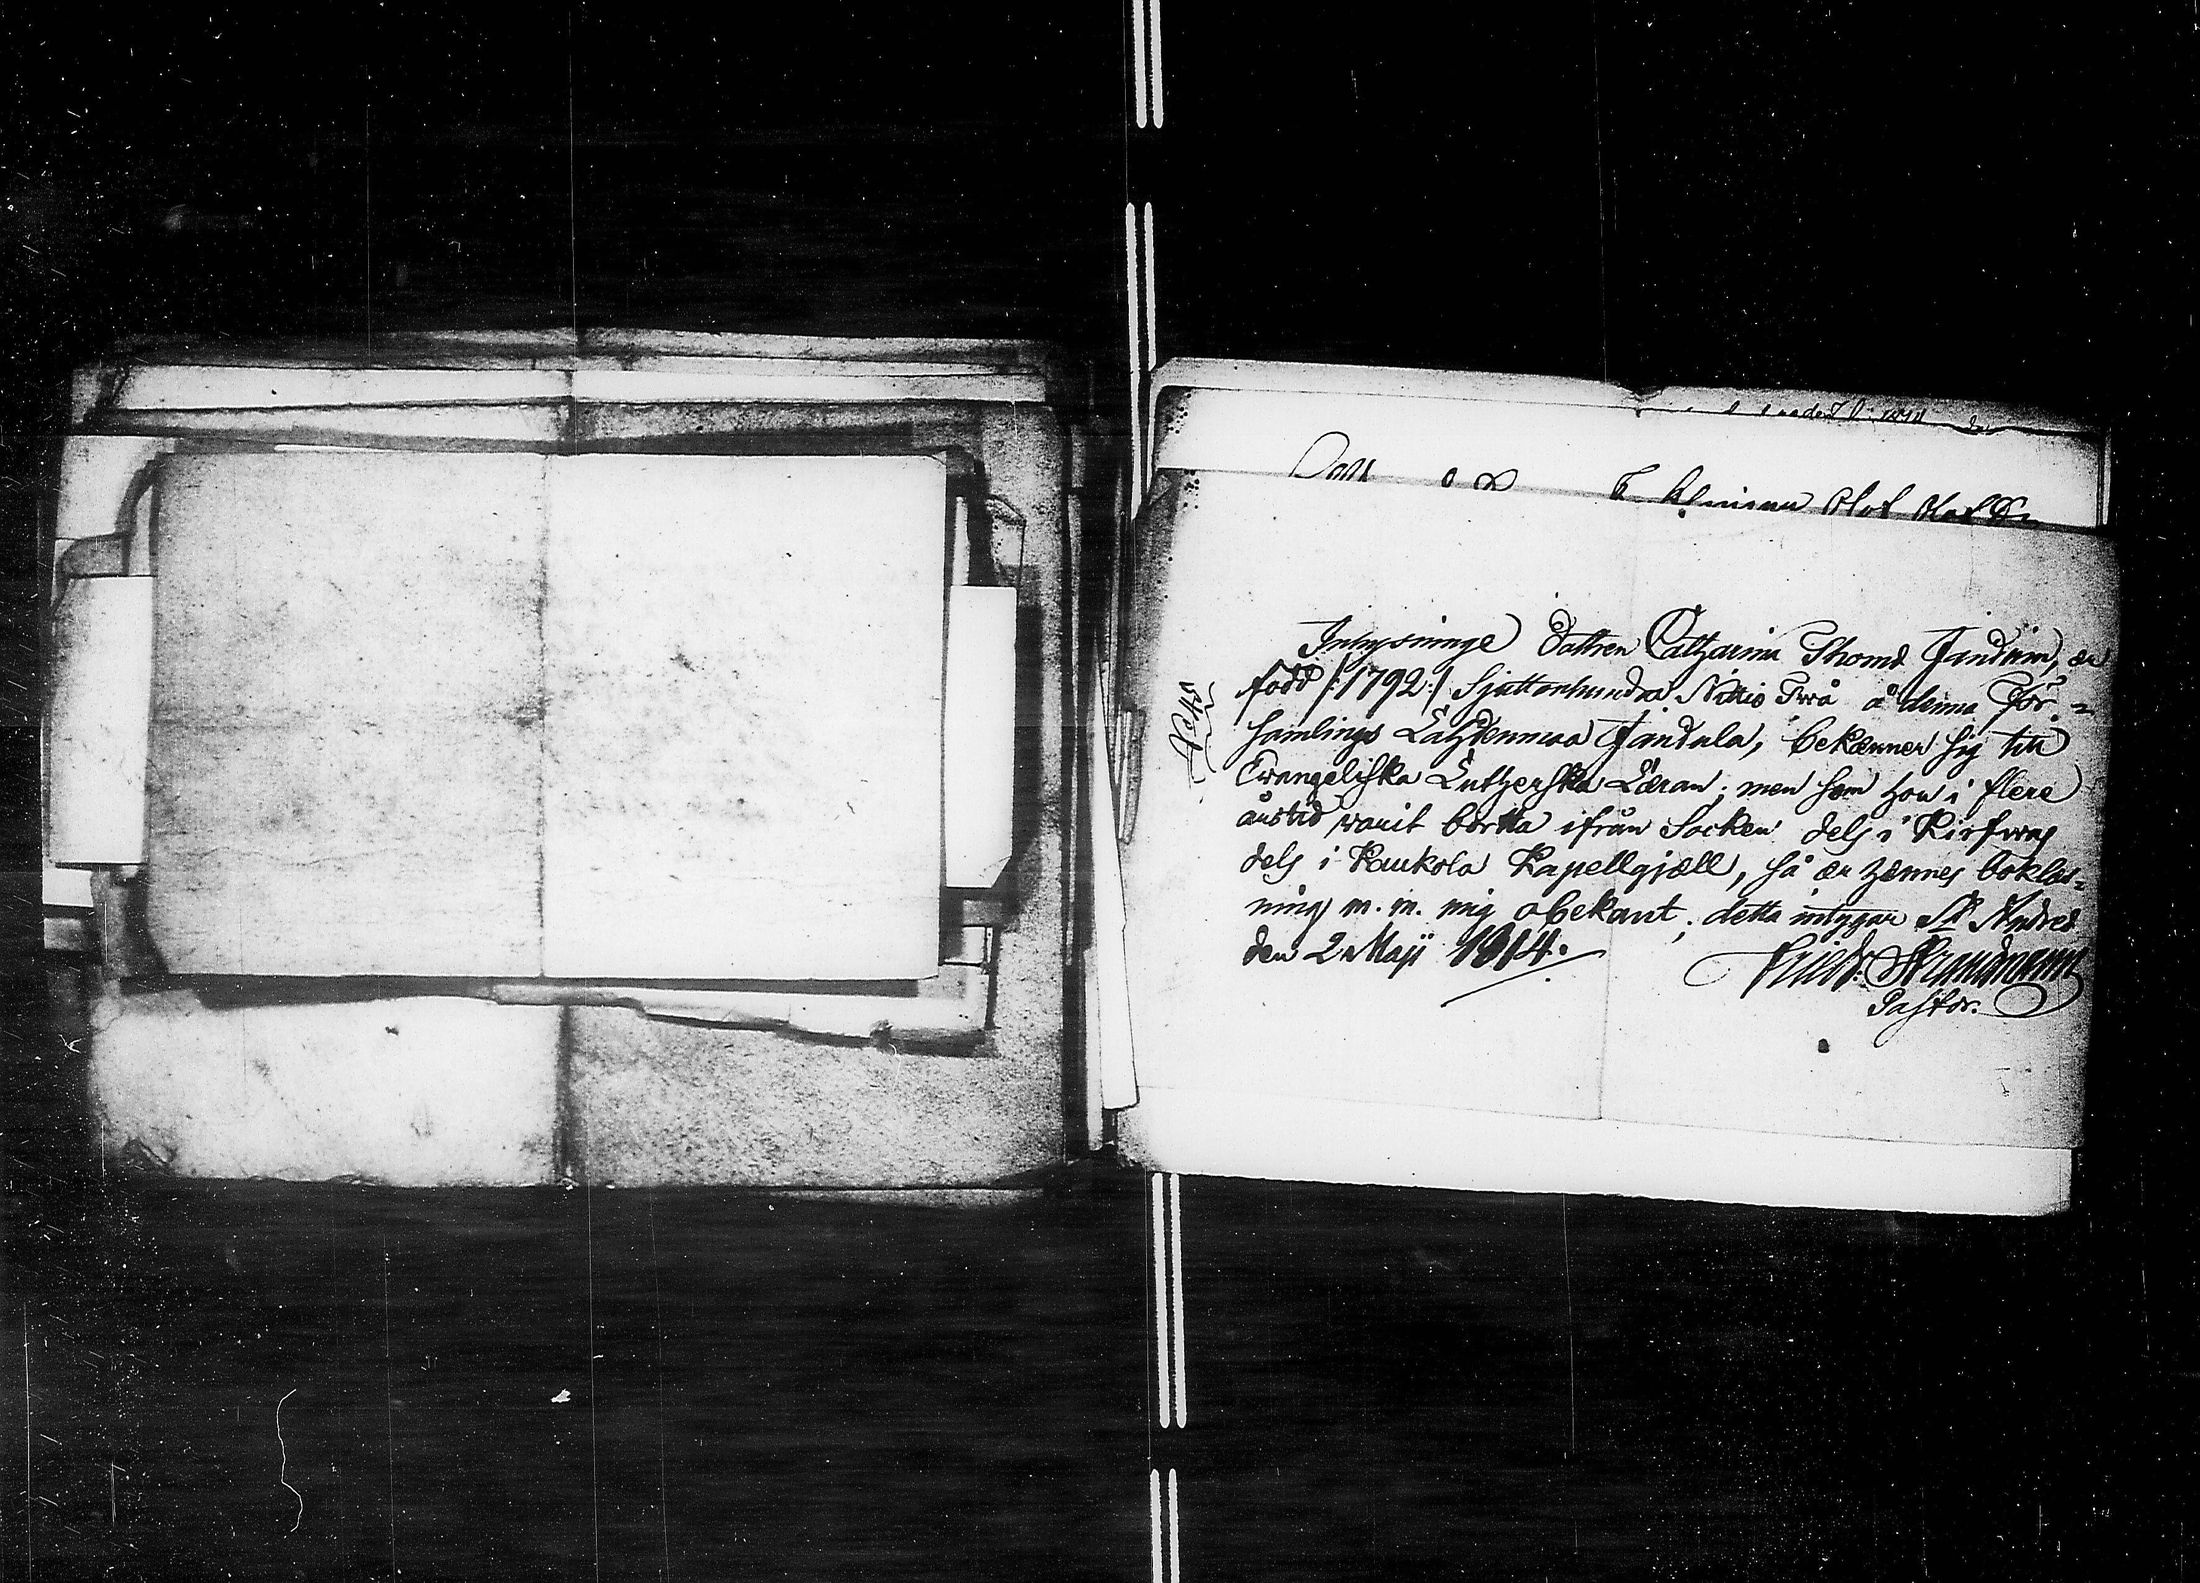 Olof Olofss
Inhysninge Dottren Catharina Thomd Janduin, är
född /:1792:/ Sjuttonhundra Nittio Två å denna För=
samlings Lähdenmaa Jandula, bekænner sig till
Evangeliska Lutherska Læran; men som hon i flere
åurstid warit bortta ifrån Socken dels i Kirfwes
dels i Kaukola Kapellgjæll, så ær hennes boklæs=
ning m. m. mig obekant; detta intygar St Andreæ
den 2 Maji 1814.
Fried: Strandmann
Pastor.
No 48